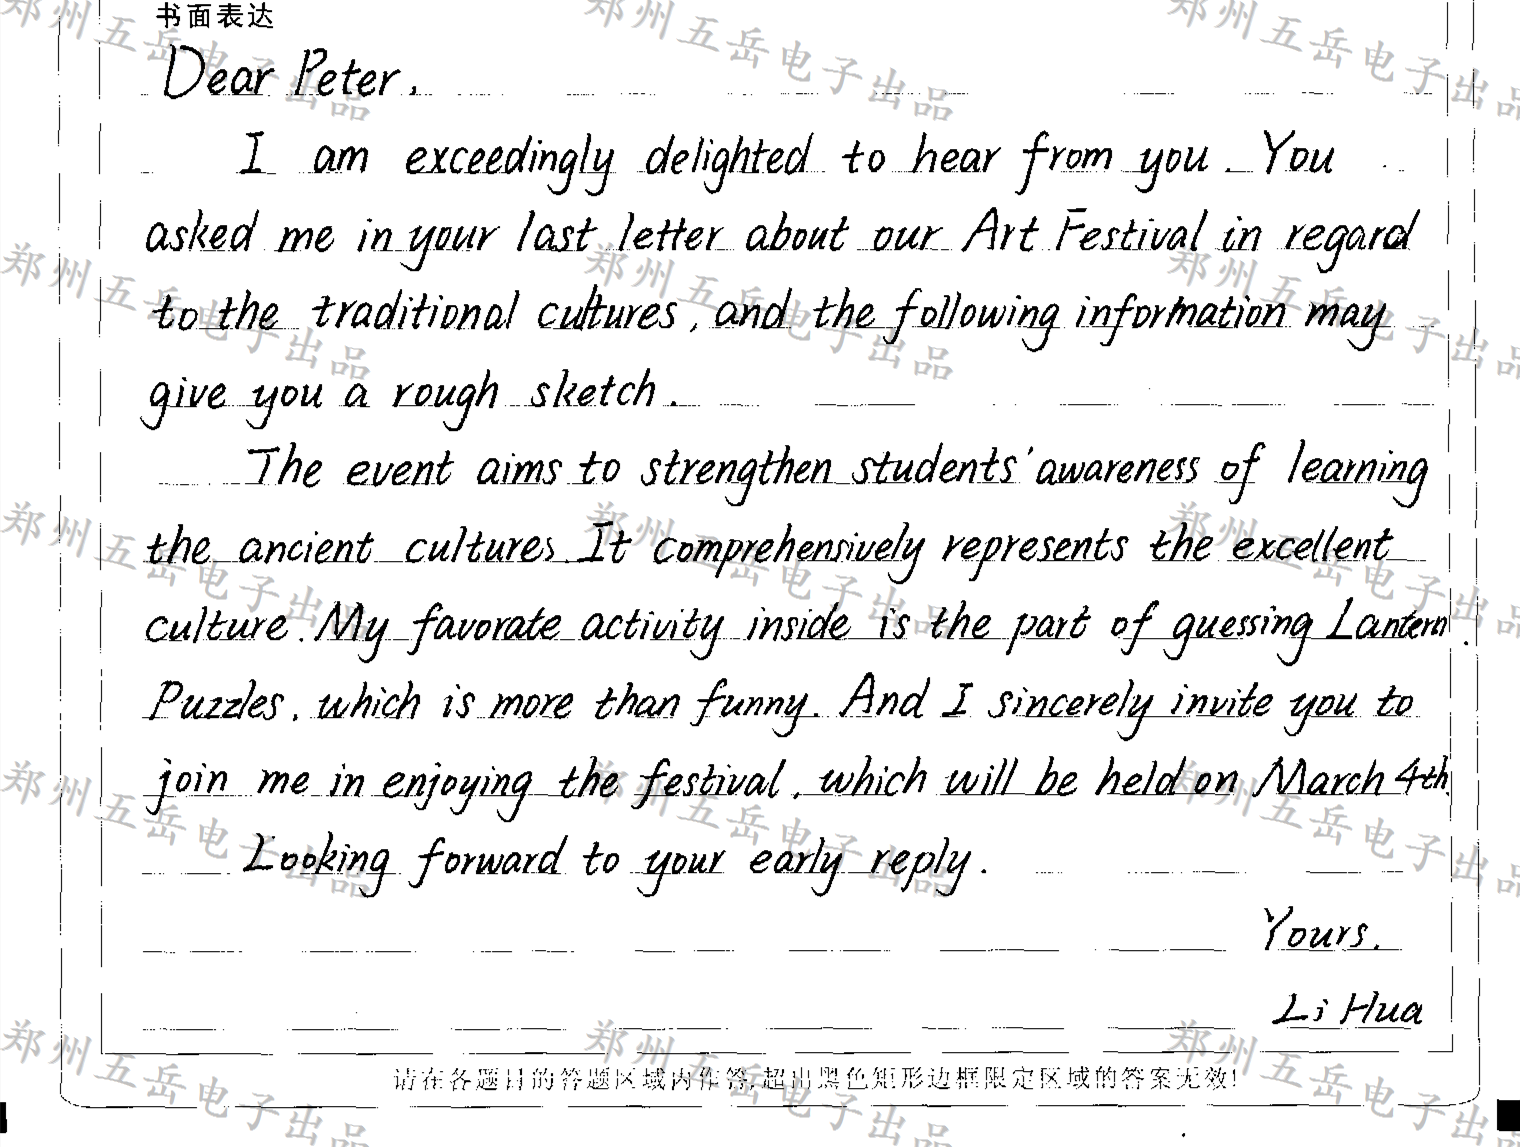 书面表达
Dear Peter,
I am exceedingly delighted to hear from you. You
asked me in your last letter about our Art Festival in regard
to the traditional cultures, and the following information may
give you a rough sketch.
The event aims to strengthen students' awareness of learning
the ancient cultures. It comprehensively represents the excellent
culture. My favorate activity inside is the part of guessing Lantern
Puzzles, which is more than funny. And I sincerely invite you to
join me in enjoying the festival, which will be held on March 4th.
Looking forward to your early reply.
Yours,
Li Hua
请在各题目的答题区域内作答,超出黑色矩形边框限定区域的答案无效!
郑州五岳电子出品